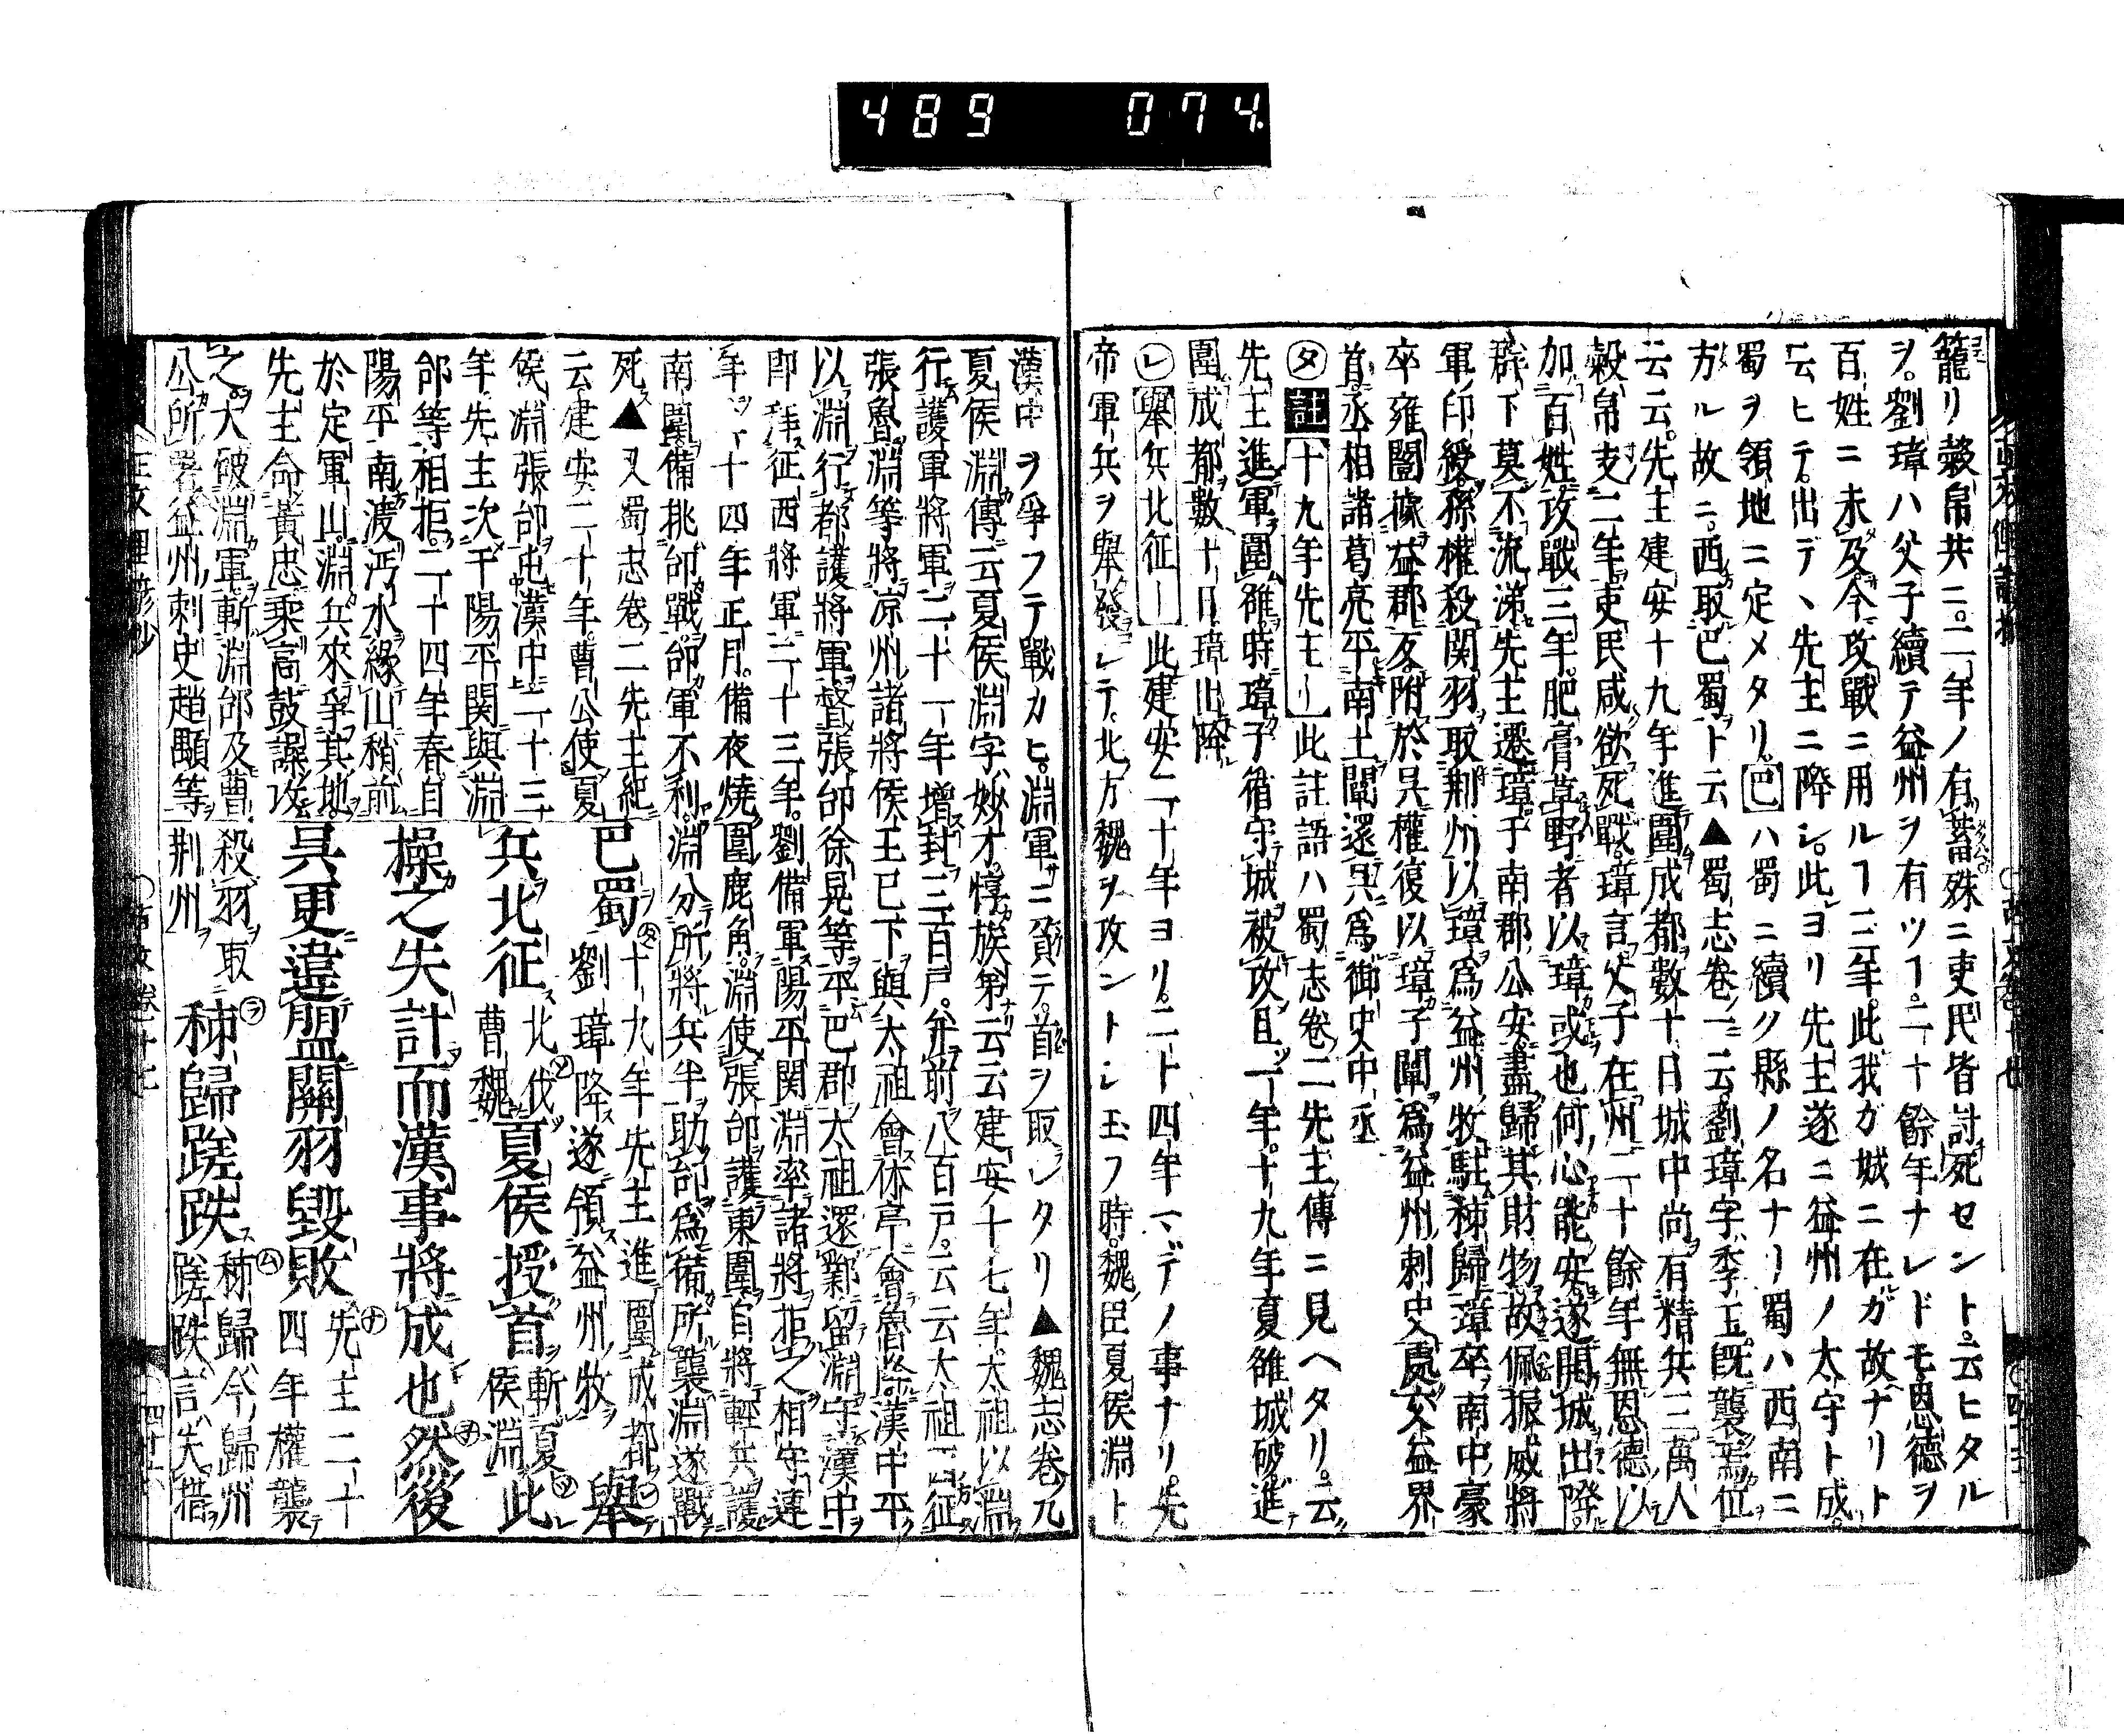 489 074
籠リ穀帛共ニ二年ノ有蓄殊ニ吏民皆討死セントニ云ヒタル
ヲ劉璋ハ父子續テ益州ヲ有ツヿ二十餘年ナレドモ恩德ヲ
百姓ニ未及今攻戰ニ用ルヿ三年此我ガ城ニ在ガ故ナリト
云ヒテ出デヽ先主ニ降シ此ヨリ先主遂ニ益州ノ太守ト成
蜀ヲ領地ニ定メタリ巴ハ蜀ニ續ク縣ノ名ナリ蜀ハ西南ニ
方ル故ニ西取巴蜀ト云▲蜀志卷一云劉璋字季玉既襲焉位
云云先主建安十九年進圍成都數十日城中尚有精兵三萬人
穀帛支二年吏民咸欲死戰璋言父子在州二十餘年無恩德以
加百姓攻戰三年肥膏草野者以璋或也何心能安遂開城出降
群下莫不流涕先主遷璋于南郡公安盡歸其財物故佩振威將
軍印綬孫權殺関羽取荊州以璋爲益州牧駐秭歸璋卒南中豪
卒雍闓據益郡反附於呉權復以璋子闡爲益州刺史處交益界
首丞相諸葛亮平南土闡還呉爲御史中丞
タ註十九年先主一此註語ハ蜀志卷二先主傳ニ見ヘタリ云
先主進軍圍雒時璋子循守城被攻且一年十九年夏雒城破進
圍成都數十日璋出降
レ舉兵北征一此建安二十年ヨリ二十四年マデノ事ナリ先
帝軍兵ヲ舉發レテ北方魏ヲ攻ントシ玉フ時魏臣夏侯淵ト
漢中ヲ爭フテ戰カヒ淵軍ニ負テ首ヲ取レタリ▲魏志卷九
夏侯淵傳云夏侯淵字妙才惇族弟云云建安十七年太祖以淵
行護軍將軍二十一年增封三百戸并前八百戸云云太祖征
張魯淵等將凉州諸將侯王已下與太祖會休亭會魯降漢中平
以淵行都護將軍督張郃徐晃等平巴郡太祖還鄴留淵守漢中
即拜征西將軍二十三年劉備軍陽平関淵率諸將拒之相守連
年二十四年正月備夜燒圍鹿角淵使張郃護東圍自將輕兵護
南圍備挑郃戰郃軍不利淵分所將兵半助郃爲備所襲淵遂戰
死▲又蜀志卷二先主紀
云建安二十年曹公使夏
侯淵張郃屯漢中二十三
年先主次于陽平関與淵
郃等相拒二十四年春自
陽平南渡沔水緣山稍前
於定軍山淵兵來爭其地
先主命黃忠乘高鼓譟攻
之大破淵軍斬淵郃及曹
公所署益州刺史趙顒等
巴蜀 十九年先主進圍成都
劉璋降遂領益州牧 舉
兵北征 北伐
曹魏 夏侯授首 斬夏
侯淵 此
操之失計而漢事將成也然後
呉更違盟關羽毀敗 先主二十
四年權襲
殺羽取
荆州 秭歸蹉跌 秭歸今歸州
蹉跌言失措